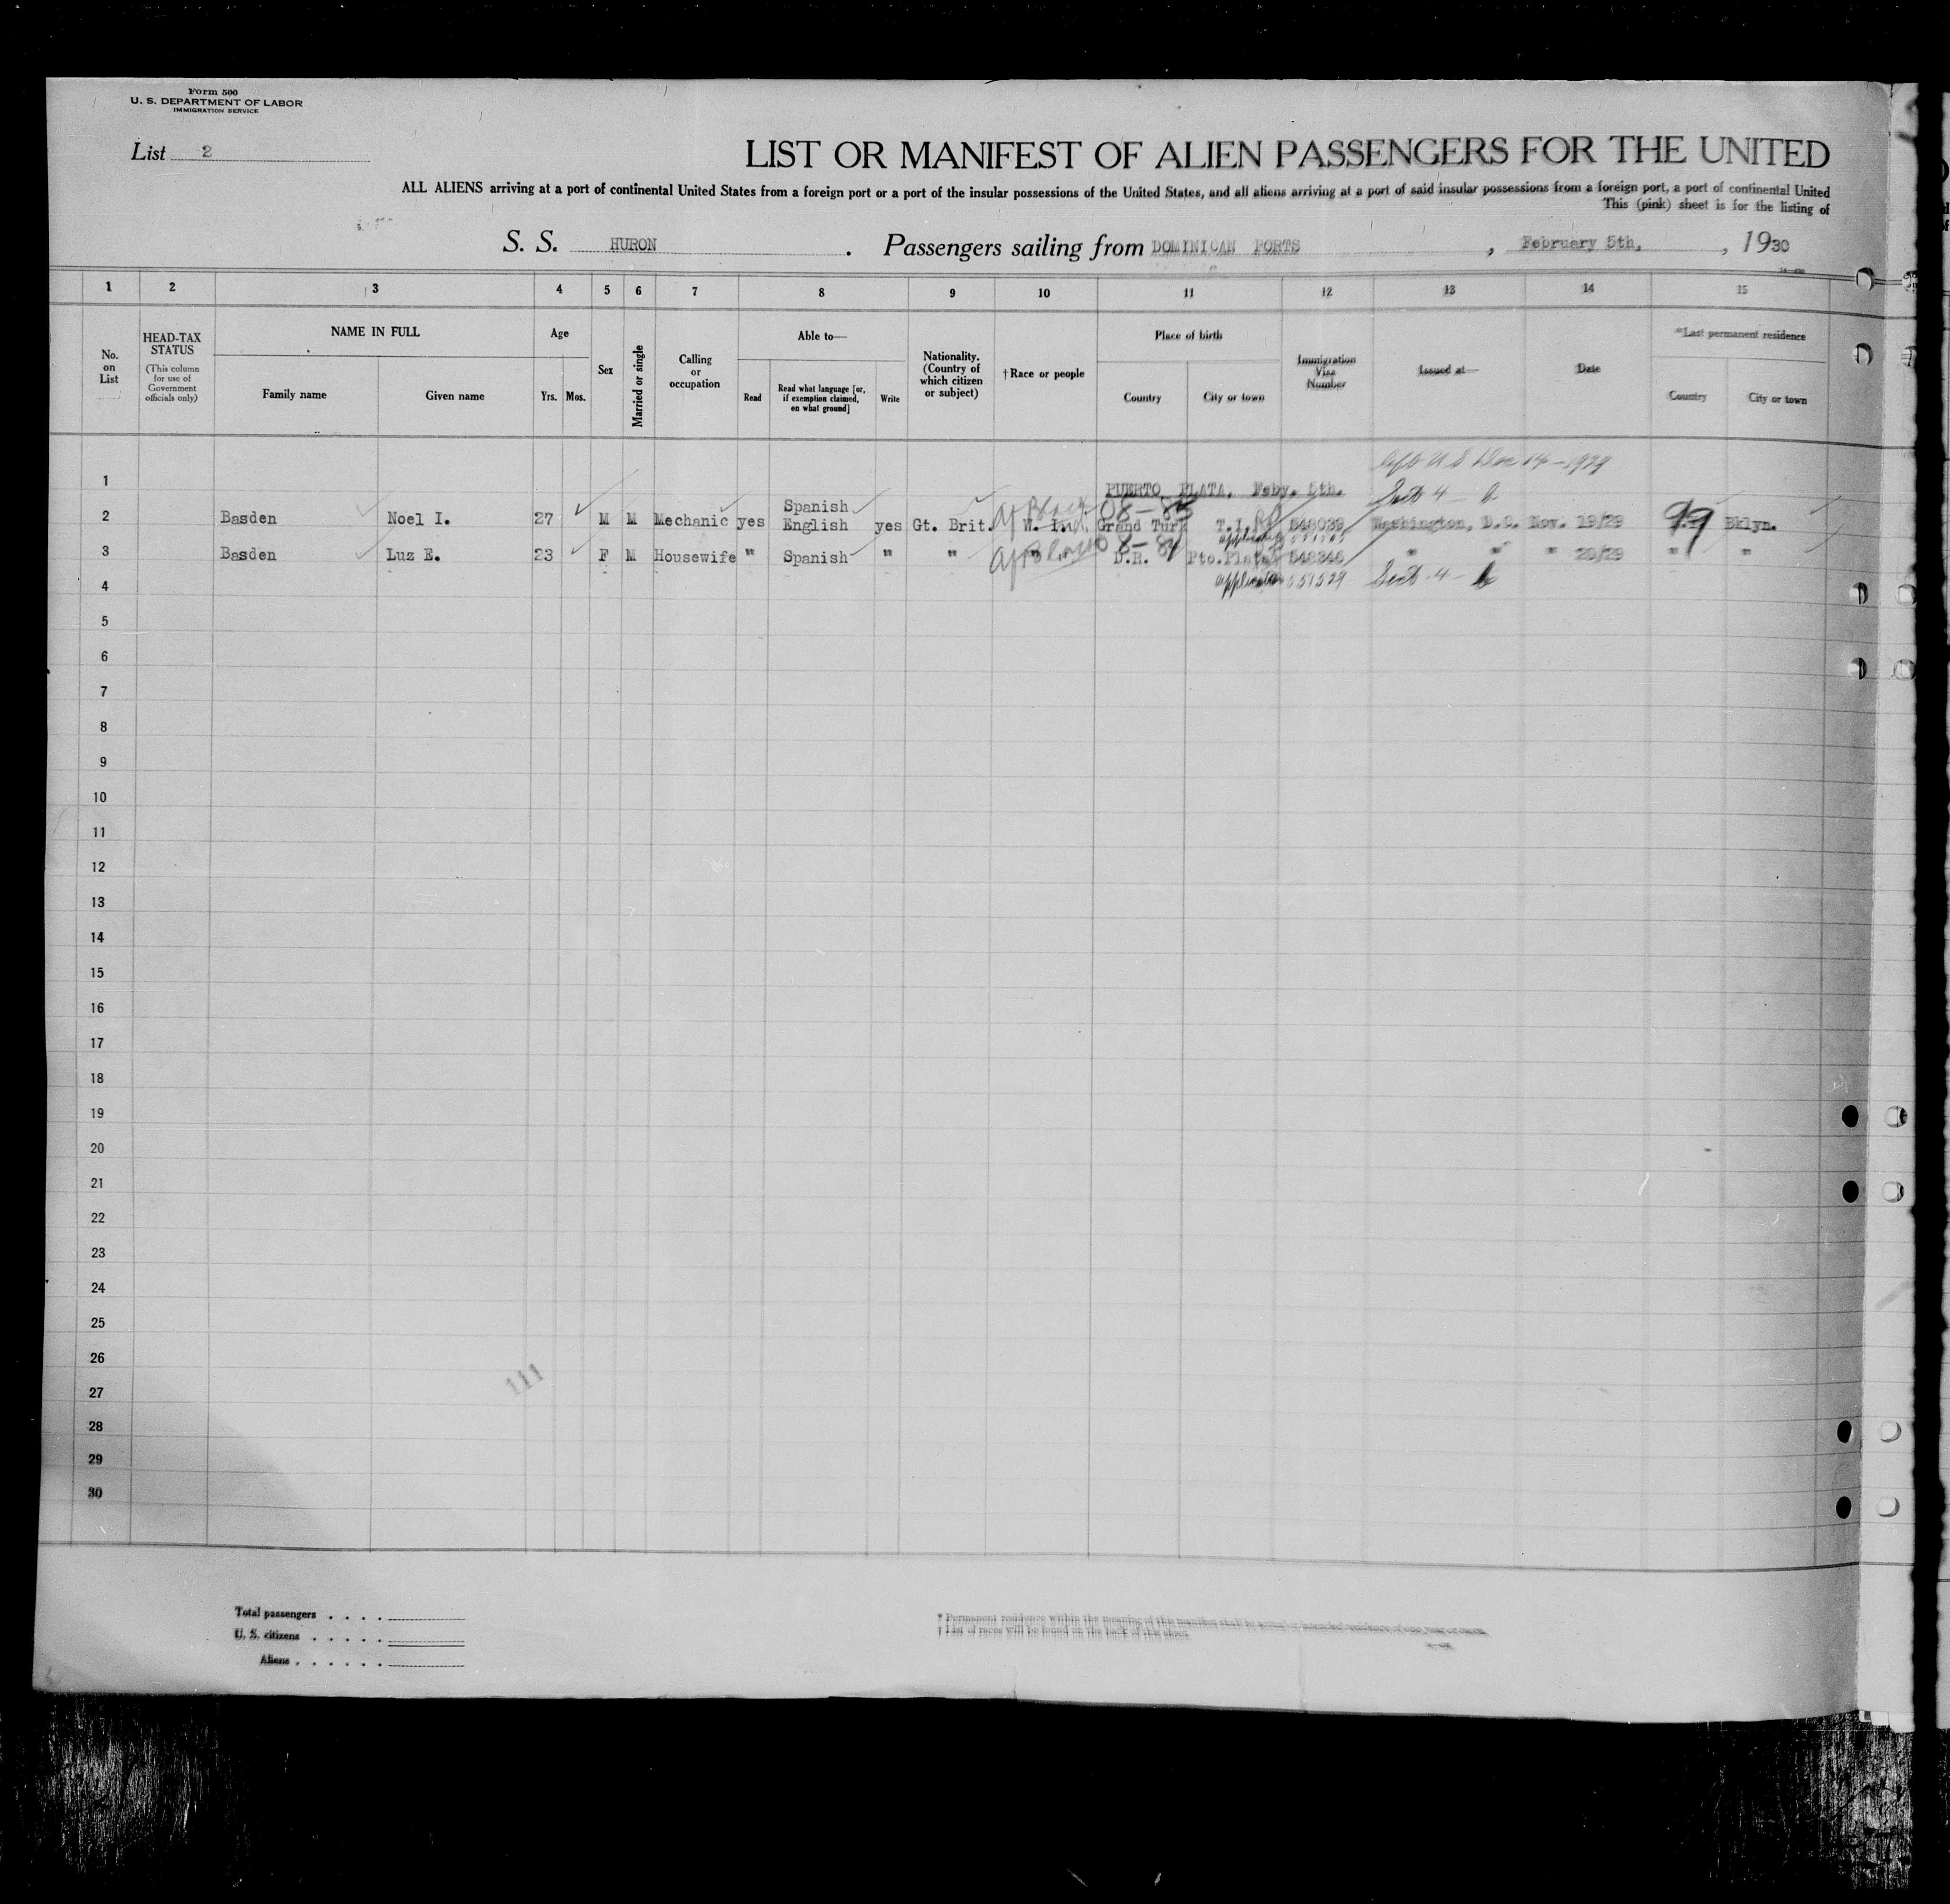 Form 500
U. S. DEPARTMENT OF LABOR
IMMIGRATION SERVICE
List 2
LIST OR MANIFEST OF ALIEN PASSENGERS FOR THE UNITED
ALL ALIENS arriving at a port of continental United States from a foreign port or a port of the insular possessions of the United States, and all aliens arriving at a port of said insular possessions from a foreign port, a port of continental United
This (pink) sheet is for the listing of
S. S. HURON. Passengers sailing from DOMINICAN PORTS, February 5th, 1930
1 2 3 4 5 6 7 8 9 10 11 12 13 14 15
No. on List
HEAD-TAX STATUS (This column for use of Government officials only)
NAME IN FULL
Family name
Given name
Age
Yrs. Mos.
Sex
Married or single
Calling or occupation
Able to—
Read
Read what language [or, if exemption claimed, on what ground]
Write
Nationality. (Country of which citizen or subject)
†Race or people
Place of birth
Country
City or town
Immigration Visa Number
Issued at—
Date
*Last permanent residence
Country
City or town
left U S Dec 14-1929
1 PUERTO PLATA, Feby. 5th. Sect 4 - b
2 Basden Noel I. 27 M M Mechanic yes Spanish English yes Gt. Brit. W. Ind. Grand Turk T.I. 548039 Washington, D.C. Nov. 19/29 Bklyn.
3 Basden Luz E. 23 F M Housewife " Spanish " " D.R. Pto.Plata 548346 " " " 20/29 " "
4 651529 Sect 4 - b
5
6
7
8
9
10
11
12
13
14
15
16
17
18
19
20
21
22
23
24
25
26
27
28
29
30
111
Total passengers . . . .
U. S. citizens . . . . .
Aliens . . . . . .
* Permanent residence within the meaning of this manifest shall be actual or intended residence of one year or more.
† List of races will be found on the back of this sheet.